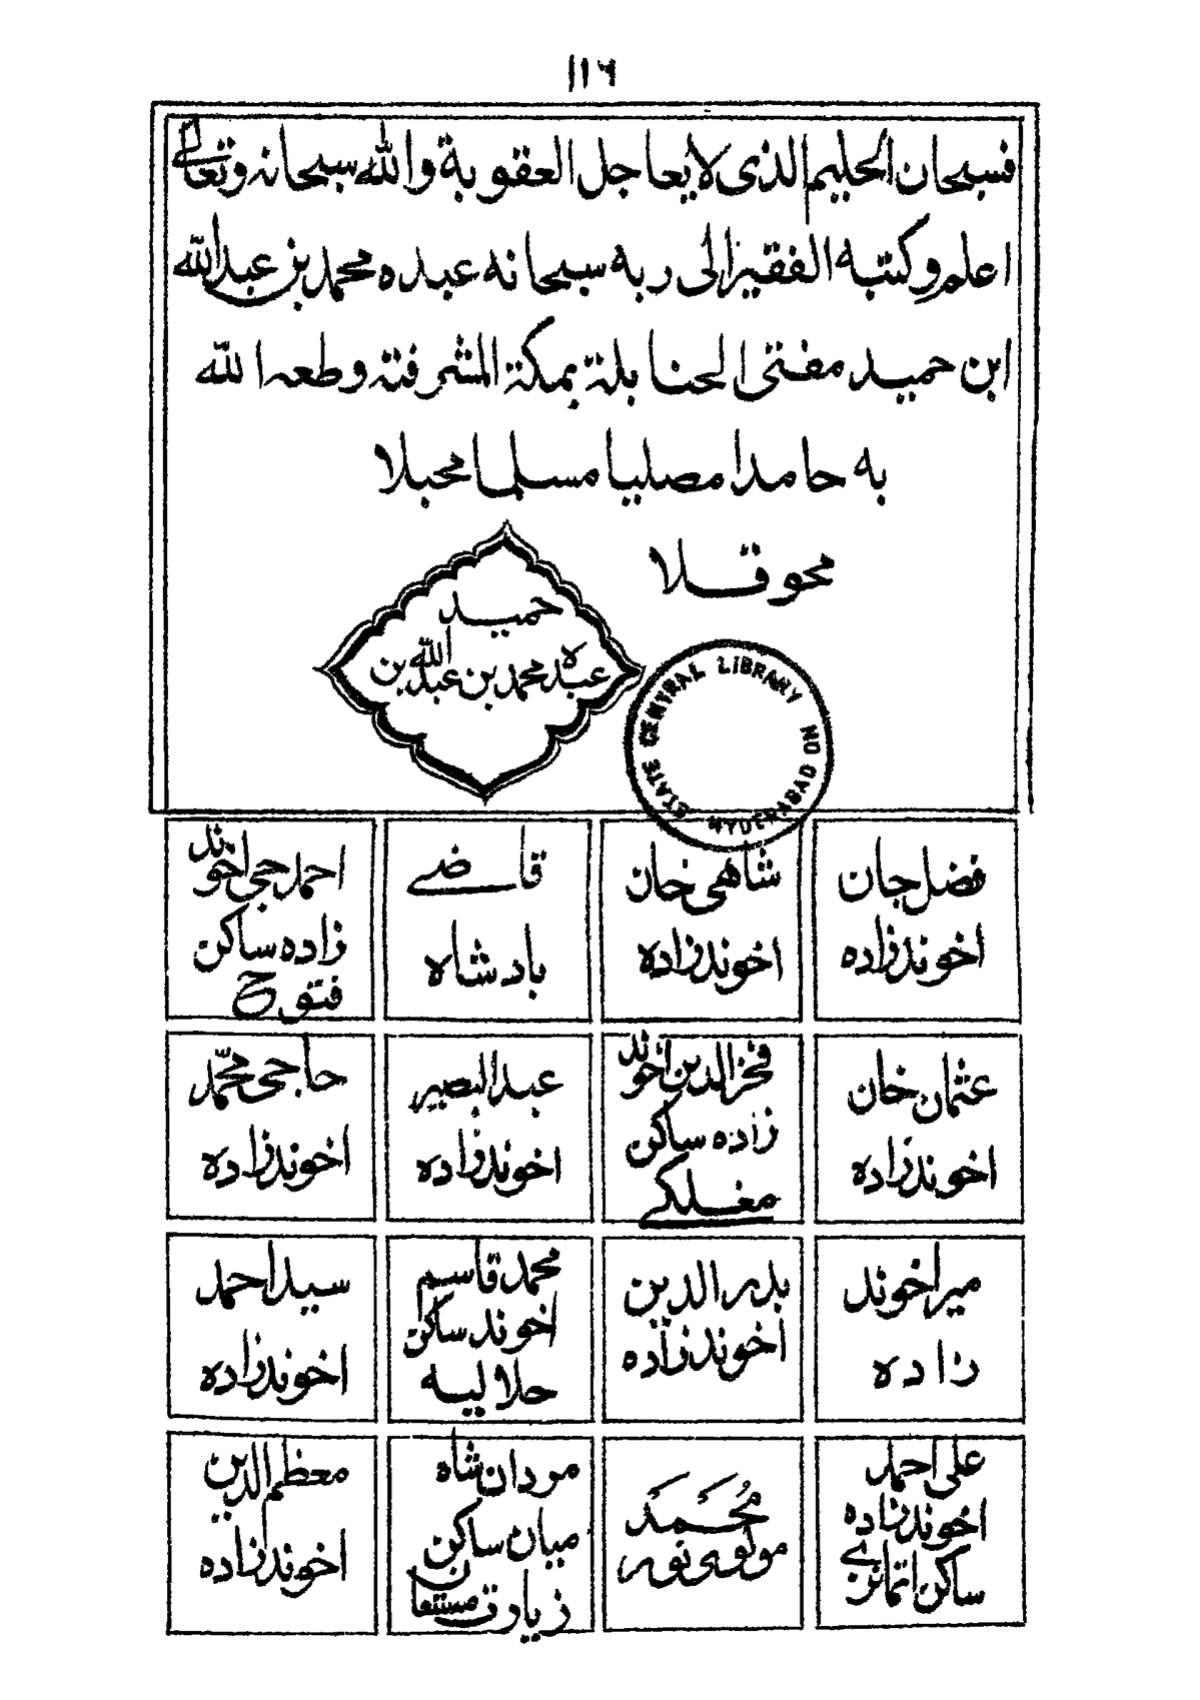 ١١٦
فسبحان الحليم الذى لا يعاجل العقوبة والله سبحانه وتعالى
اعلم وكتبه الفقير الى ربه سبحانه عبده محمد بن عبدالله
ابن حميد مفتى الحنابلة بمكة المشرفة وطعه الله
به حامدا مصليا مسلما محبلا
محوقلا
حميد
عبده محمد بن عبدالله بن
STATE CENTRAL LIBRARY
HYDERABAD
فضل جان
اخوندزاده
شاهی خان
اخوندزاده
قاضے
بادشاه
احمد جی اخوند
زاده ساکن
فتوح
عثمان خان
اخوندزاده
فخرالدین اخوند
زاده ساکن
مغلکے
عبدالبصیر
اخوندزاده
حاجی محمّد
اخوندزاده
میر اخوند
زاده
بدرالدین
اخوندزاده
محمد قاسم
اخوند ساکن
جلالیه
سید احمد
اخوندزاده
علی احمد
اخوندزاده
ساکن اتمانزے
مُحَمَد
مولوی نور
مردان شاه
میان ساکن
زیارت
معظم الدین
اخوندزاده